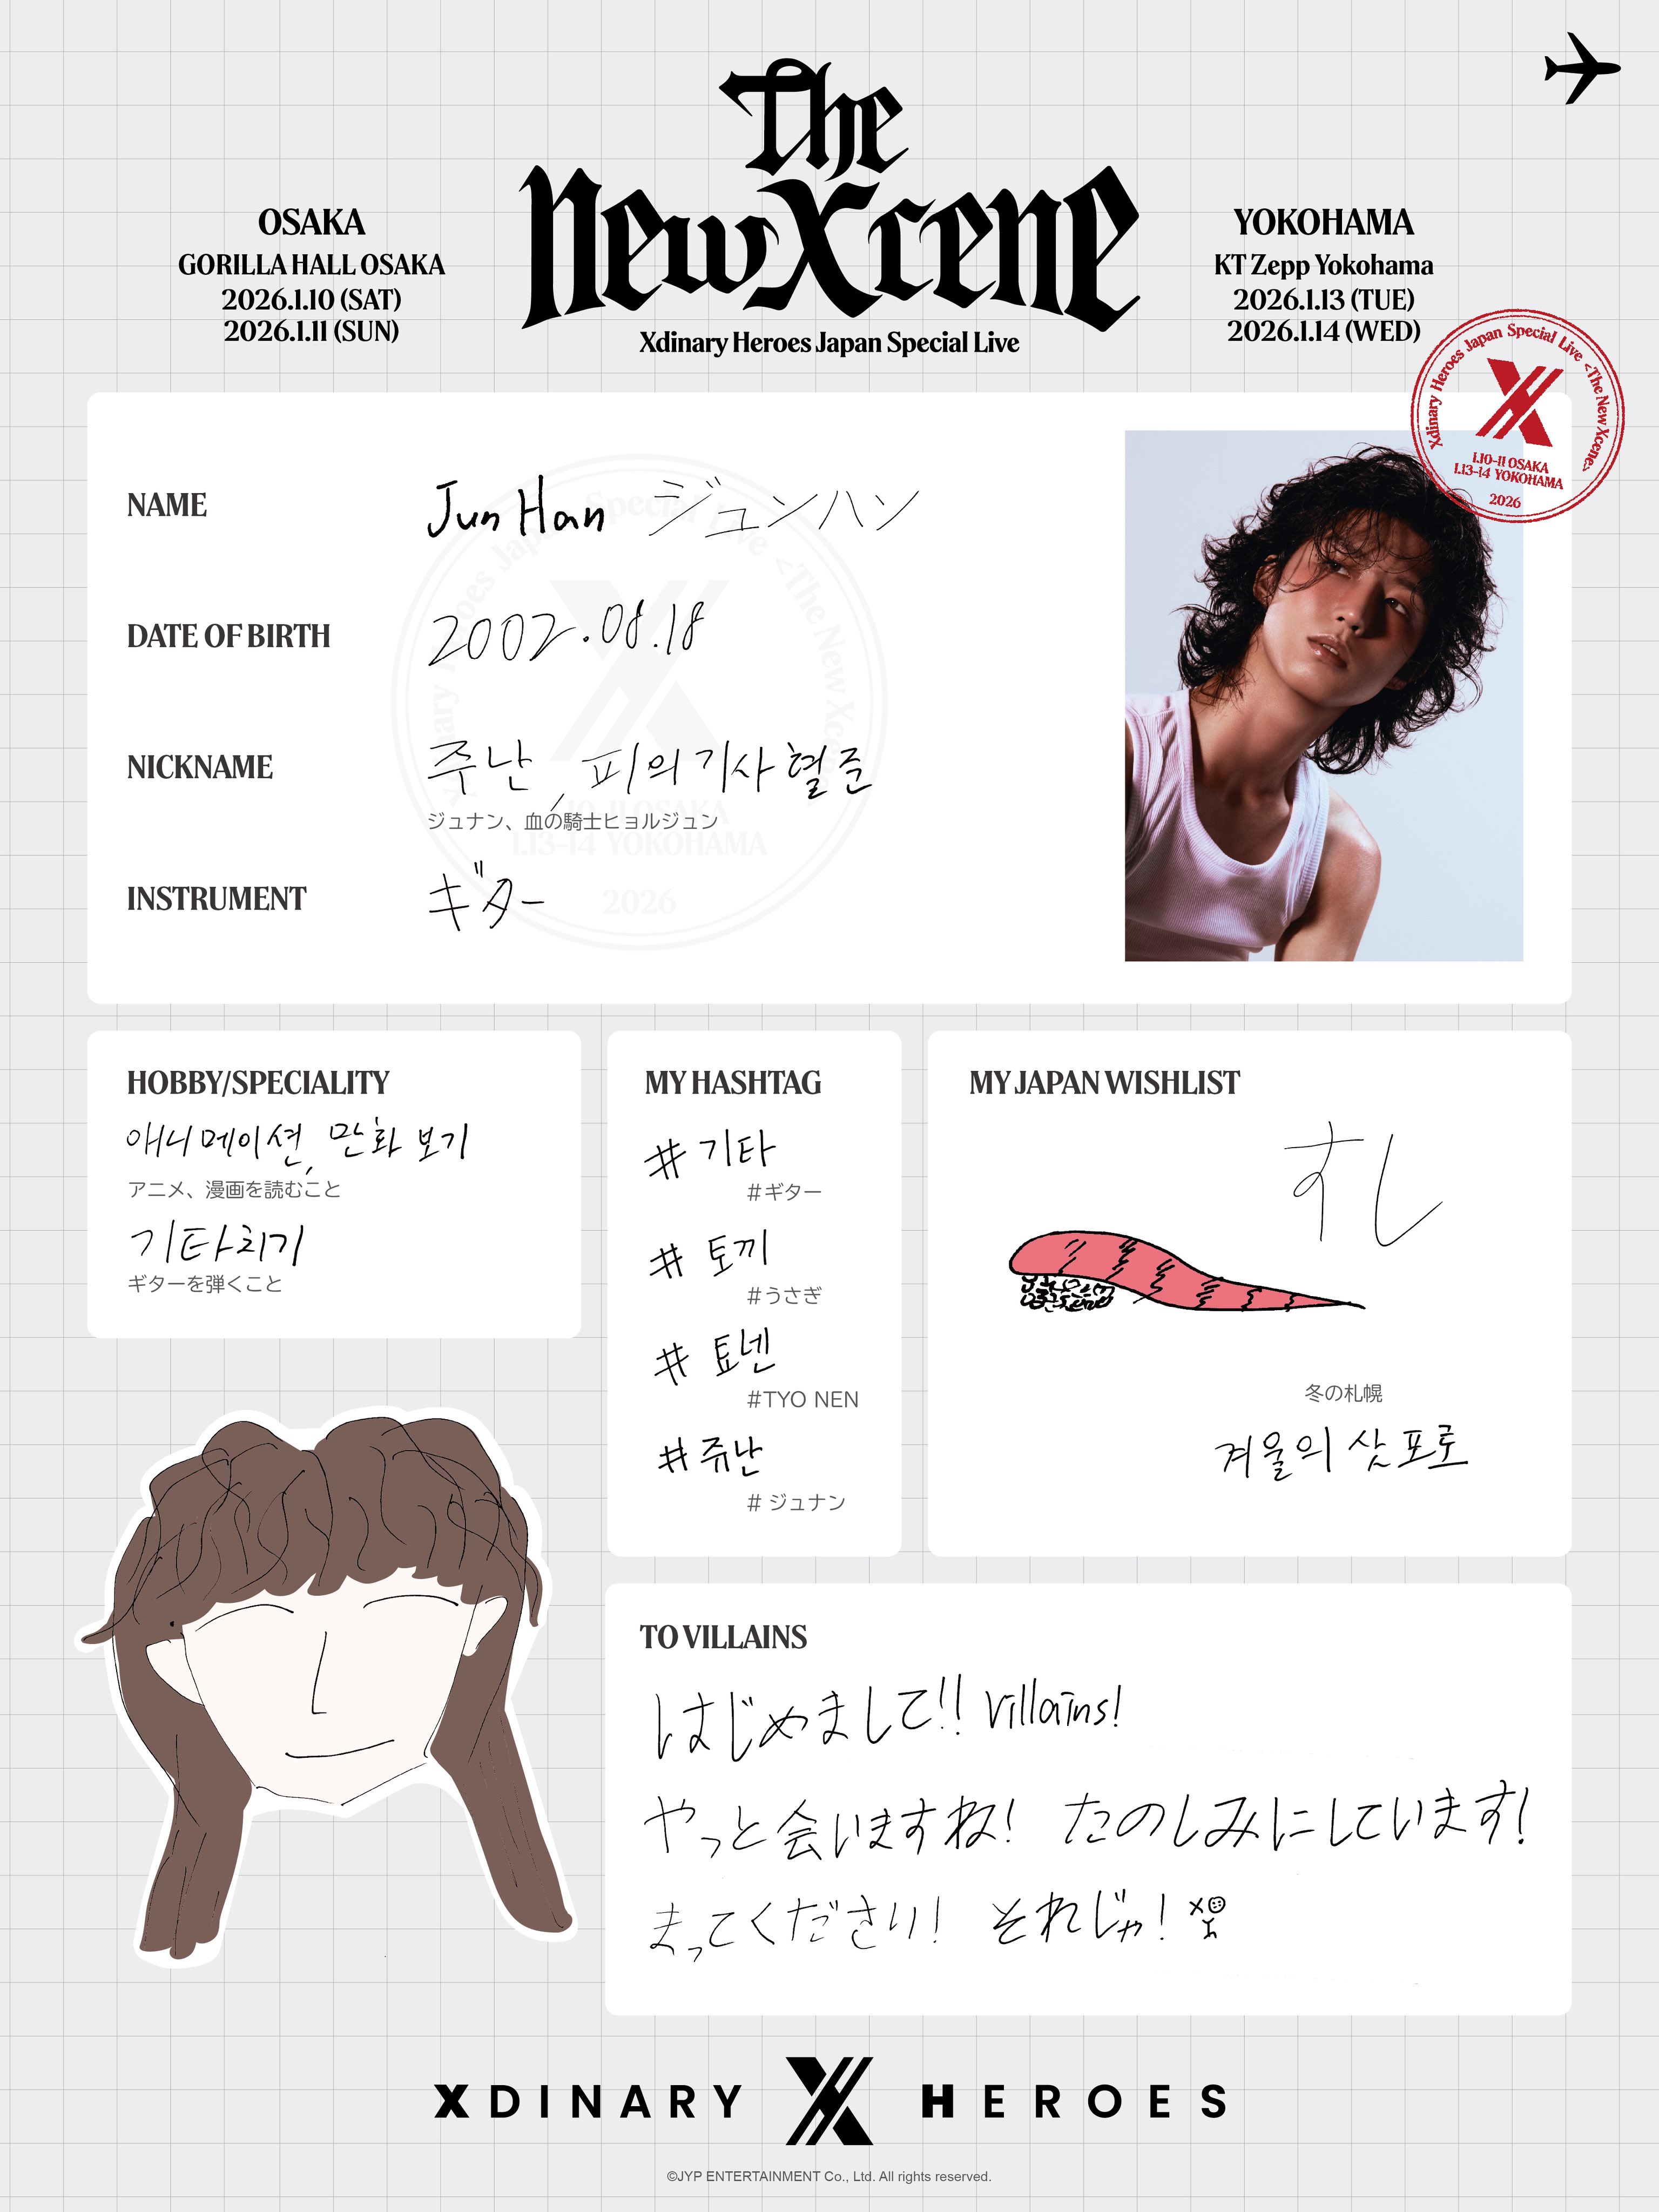 The
New Xcene
Xdinary Heroes Japan Special Live
OSAKA
GORILLA HALL OSAKA
2026.1.10 (SAT)
2026.1.11 (SUN)
YOKOHAMA
KT Zepp Yokohama
2026.1.13 (TUE)
2026.1.14 (WED)
Xdinary Heroes Japan Special Live <The New Xcene>
1.10-11 OSAKA
1.13-14 YOKOHAMA
2026
NAME
Jun Han ジュンハン
DATE OF BIRTH
2002.08.18
NICKNAME
쥬난, 피의 기사 혈준
ジュナン、血の騎士ヒョルジュン
INSTRUMENT
ギター
Xdinary Heroes Japan Special Live <The New Xcene>
1.10-11 OSAKA
1.13-14 YOKOHAMA
2026
HOBBY/SPECIALITY
애니메이션, 만화 보기
アニメ、漫画を読むこと
기타치기
ギターを弾くこと
MY HASHTAG
# 기타
#ギター
# 토끼
#うさぎ
# 툐넨
#TYO NEN
# 쥬난
# ジュナン
MY JAPAN WISHLIST
すし
冬の札幌
겨울의 삿포로
TO VILLAINS
はじめまして!! Villains!
やっと会いますね! たのしみにしています!
まってください! それじゃ!
XDINARY HEROES
©JYP ENTERTAINMENT Co., Ltd. All rights reserved.